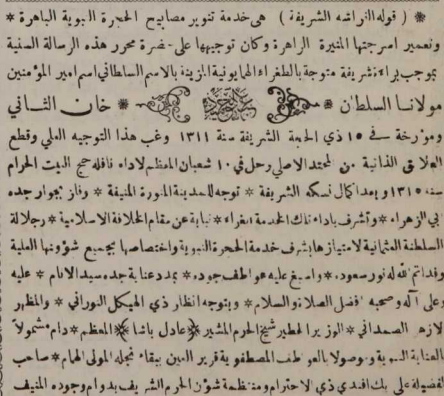 * ( قوله الفراشه الشريفة ) هى خدمة تنوير مصابيح الحجرة النبوية الباهرة *
وتعمير اسرجتها المنيرة الزاهرة وكان توجيهها على حضرة محرر هذه الرسالة السنية
بموجب براءة شريفة متوجة بالطغراء الهمايونية المزينة بالاسم السلطاني اسم امير المؤمنين
مولانا السلطان * عبد الحميد * خان الثاني
ومؤرخة في ١٥ ذي الحجة الشريفة سنة ١٣١١ وغب هذا التوجيه العلي وقطع
العلائق الذاتية من المحتد الاصلي رحل في ١٠ شعبان المعظم لاداء نافلة حج البيت الحرام
سنة ١٣١٥ وبعد اكمال نسكه الشريفة * توجه للمدينة المنورة المنيفة * وفاز بجوار جده
ابي الزهراء * وتشرف باداء تلك الخدمة الغراء * نيابة عن مقام الخلافة الاسلامية * وجلالة
السلطنة العثمانية لامتيازها بشرف خدمة الحجرة النبوية واختصاصها بجميع شؤونها العلية
وقد اتم الله له نور سعوده * واسبغ عليه عواطف جوده * بمدد عناية جده سيد الانام * عليه
وعلى آله وصحبه افضل الصلاة والسلام * وبتوجه انظار ذي الهيكل النوراني * والمظهر
الازهر الصمداني * الوزير الخطير شيخ الحرم المشير * عادل باشا * المعظم * دام مشمولاً
بالعناية النبوية وموصولا بالعواطف المصطفوية قرير العين ببقاء نجله المولى الهمام * صاحب
الفضيلة علي بك افندي ذي الاحترام ومنتظمة شؤن الحرم الشريف بدوام وجوده المنيف